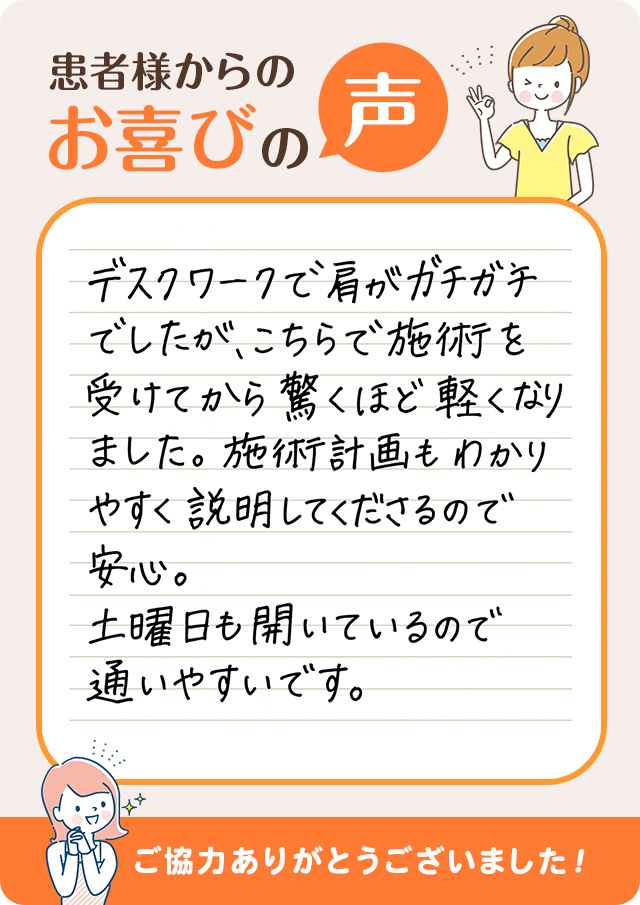 患者様からの
お喜びの声
デスクワークで肩がガチガチ
でしたが、こちらで施術を
受けてから驚くほど軽くなり
ました。施術計画もわかり
やすく説明してくださるので
安心。
土曜日も開いているので
通いやすいです。
ご協力ありがとうございました！